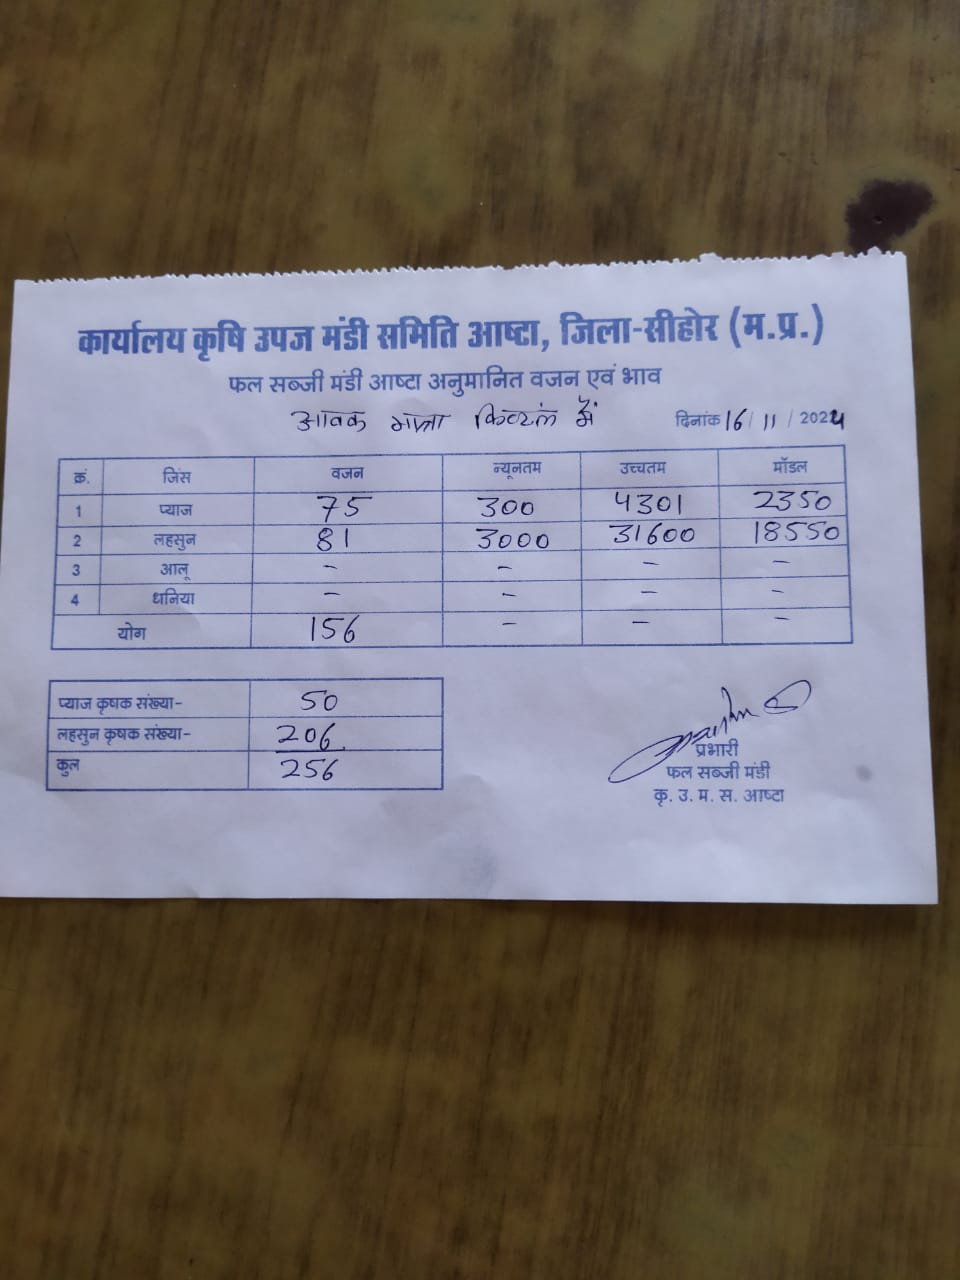 कार्यालय कृषि उपज मंडी समिति आष्टा, जिला-सीहोर (म.प्र.)
फल सब्जी मंडी आष्टा अनुमानित वजन एवं भाव
आवक मात्रा क्विटंल में दिनांक 16/11/2024
क्रं. जिंस वजन न्यूनतम उच्चतम मॉडल
1 प्याज 75 300 4301 2350
2 लहसुन 81 3000 31600 18550
3 आलू - - - -
4 धनिया - - - -
योग 156 - - -
प्याज कृषक संख्या- 50
लहसुन कृषक संख्या- 206
कुल 256
प्रभारी
फल सब्जी मंडी
कृ. उ. म. स. आष्टा